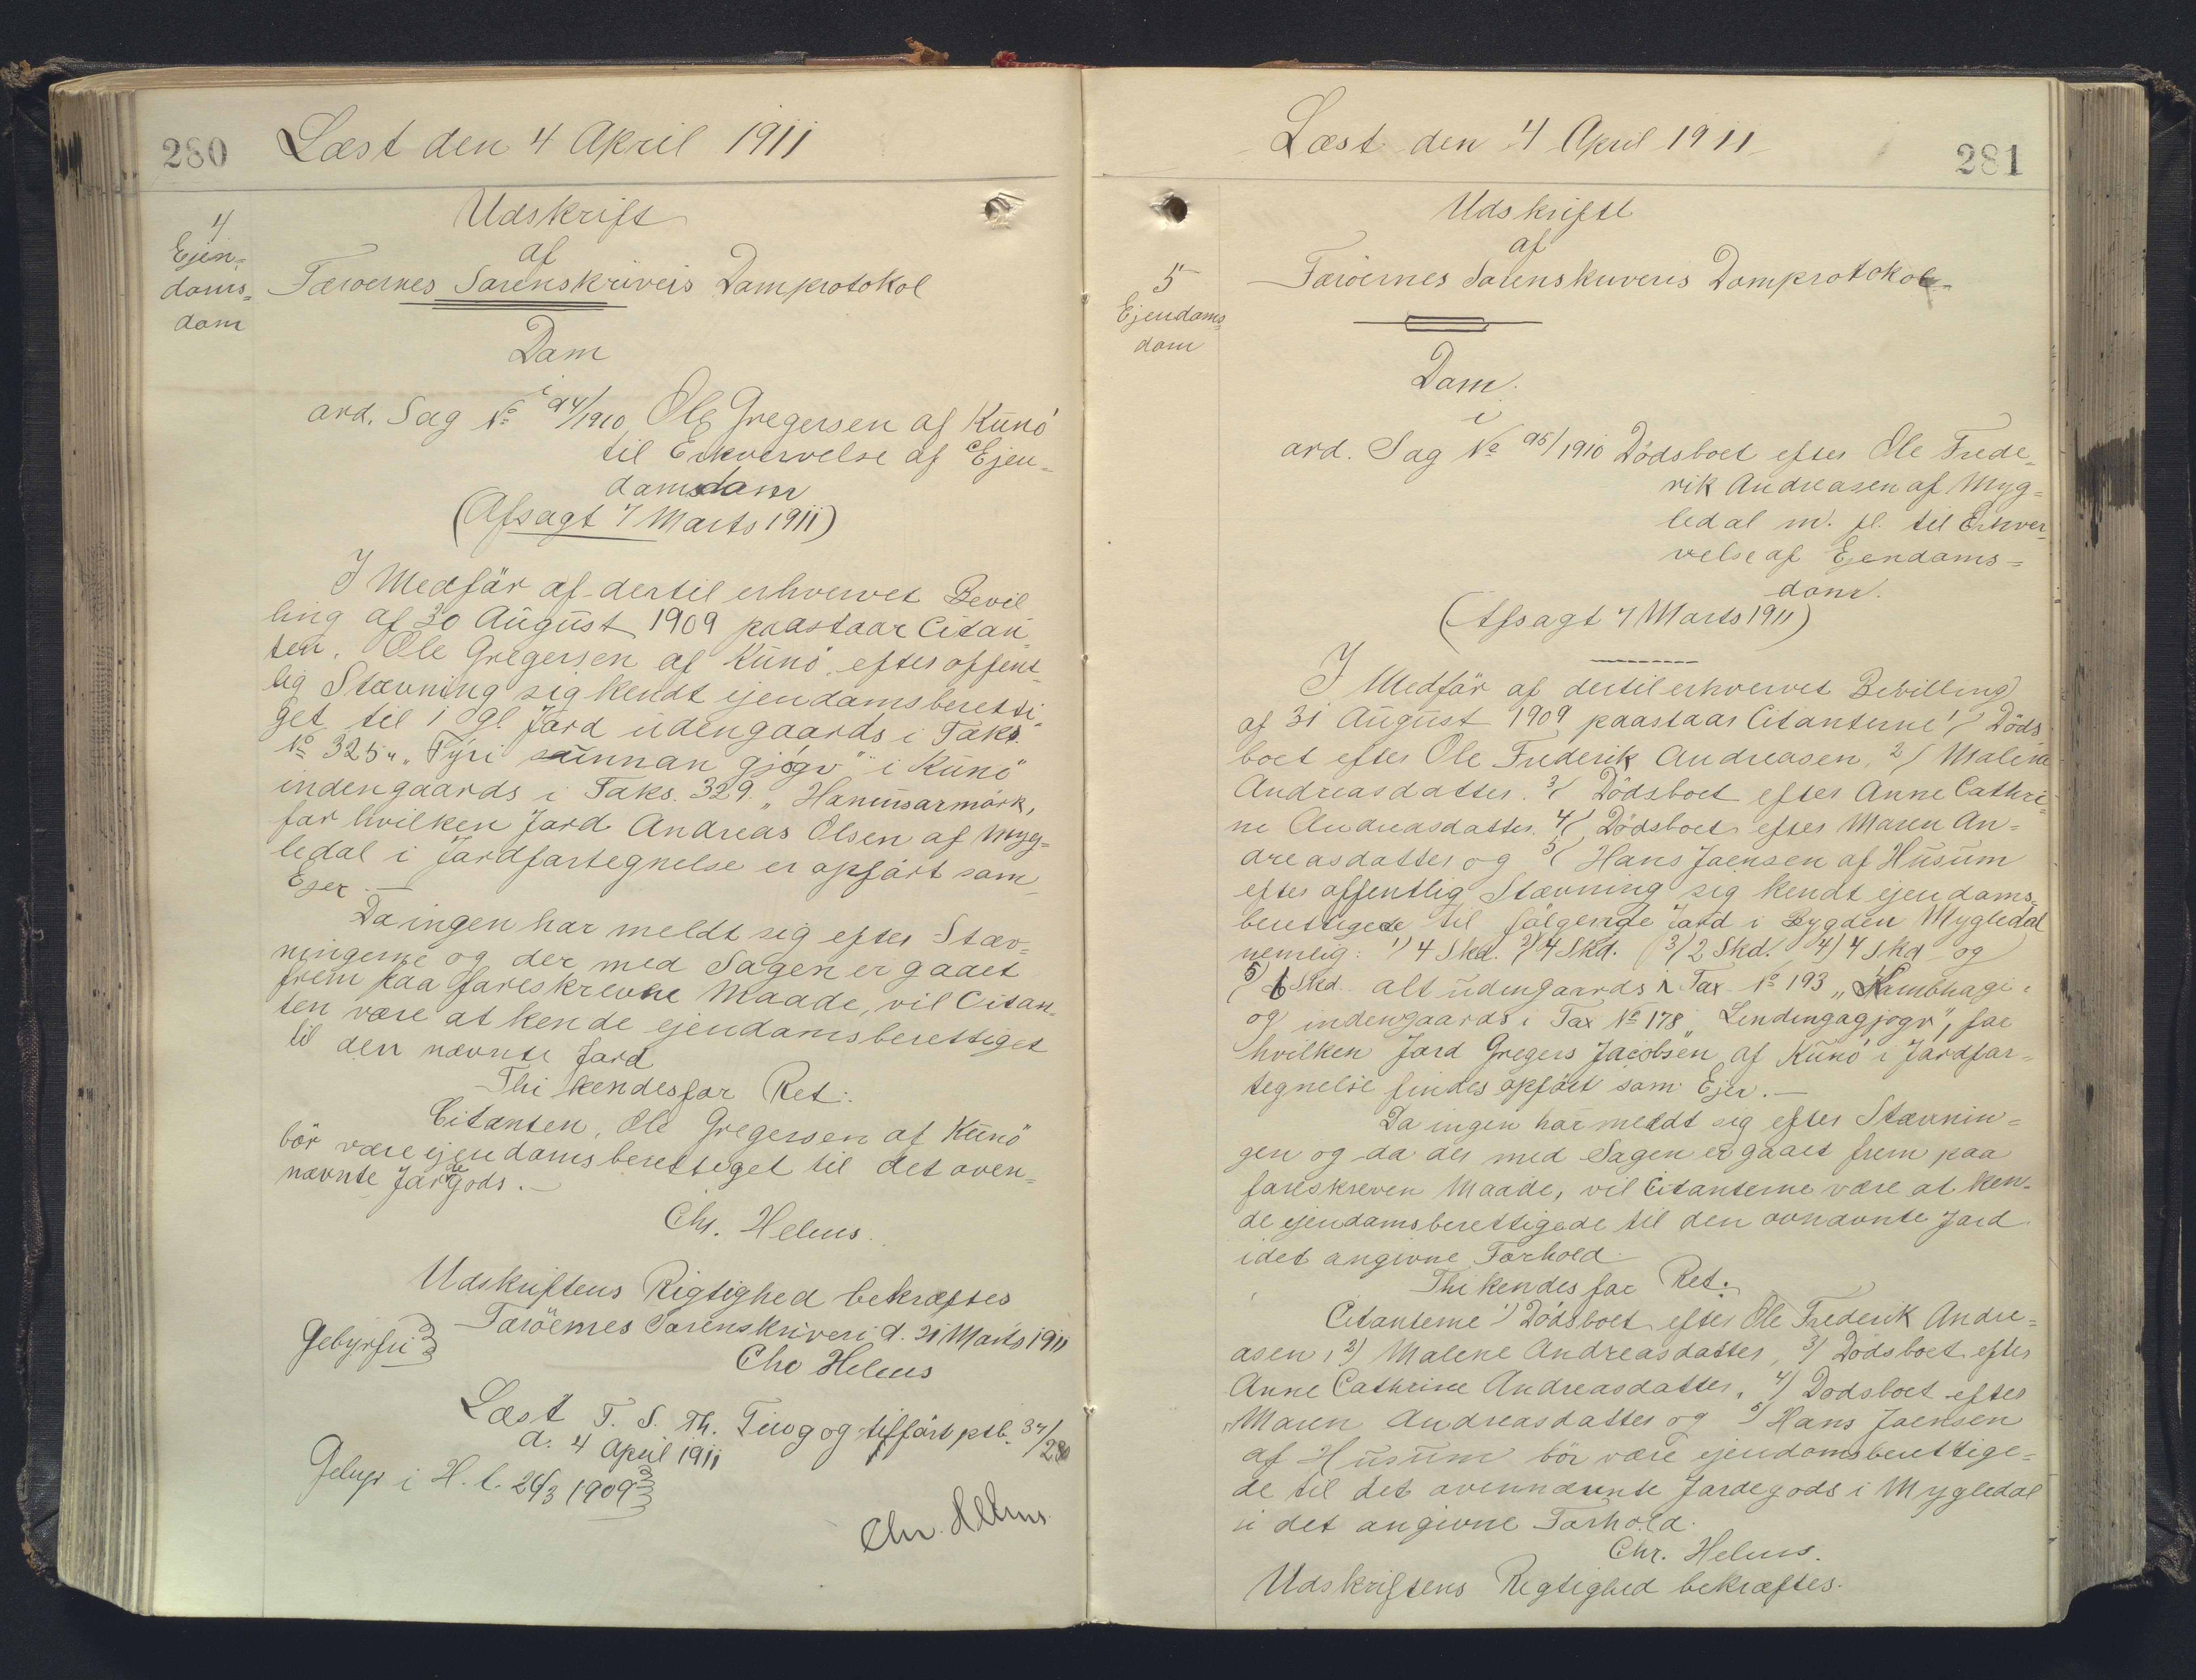 280
Læst den 4 April 1911
4/
Ejen=
doms=
dom
Udskrift
af
Færøernes Sorenskriveris Domprotokol
Dom
i
ord. Sag No 94/1910 Ole Gregersen af Kunö
til Erhvervelse af Ejen=
domsdom
(Afsagt 7 Marts 1911)
I Medför af dertil erhvervet Bevil
ling af 30 August 1909 paastaar Citan
ten, Ole Gregersen af Kunö, efter offent
lig Stævning sig kendt ejendomsberetti
get til 1 gl. Jord udengaards i Taks.
No 325 "Fyri sunnan gjógv" i Kunö
indengaards i Taks. 329 "Hanusarmörk,
for hvilken Jord Andreas Olsen af Myg=
ledal i Jordfortegnelse er opfört som
Ejer. —
Da ingen har meldt sig efter Stæv=
ningerne og der med Sagen er gaaet
frem paa foreskrevne Maade, vil Citan=
ten være at kende ejendomsberettiget
til den nævnte Jord
Thi kendes for Ret:
Citanten, Ole Gregersen af Kunö
bör være ejendomsberettiget til det oven=
nævnte Jordegods. —
Chr. Helms.
Udskriftens Rigtighed bekræftes
Færöernes Sorenskriveri d. 21 Marts 1911
Gebyrfri
Chr Helms
Læst F. S. Th. Ting og tilfört ptb. 34/280
d. 4 April 1911
Gebyr i H. t. 24/3 1909
Chr. Helms
Læst den 4 April 1911
281
5
Ejendoms=
dom
Udskrift
af
Færöernes Sorenskriveris Domprotokol
Dom.
i
ord. Sag No 95/1910 Dödsboet efter Ole Frede=
rik Andreasen af Myg=
ledal m. fl. til Erhver
velse af Ejendoms=
dom.
(Afsagt 7 Marts 1911)
I Medför af dertil erhvervet Bevilling
af 31 August 1909 paastaar Citanterne 1/ Döds
boet efter Ole Frederik Andreasen, 2/ Malene
Andreasdatter. 3/ Dödsboet efter Anne Cathri=
ne Andreasdatter. 4/ Dödsboet efter Maren An=
dreasdatter og 5/ Hans Joensen af Husum
efter offentlig Stævning sig kendt ejendoms=
berettigede til fölgende Jord i Bygden Mygledal
nemlig: 1) 4 Skd. 2) 4 Skd. 3/ 2 Skd. 4) 4 Skd og
5) 6 Skd. alt udengaards i Tax No 193 "Kambhage"
og indengaards i Tax No 178 "Lendingagjogv", for
hvilken Jord Gregers Jacobsen af Kunö i Jordfor=
tegnelse findes opfört som Ejer. —
Da ingen har meldt sig efter Stævnin=
gen og da der med Sagen er gaaet frem paa
foreskreven Maade, vil Citanterne være at ken=
de ejendomsberettigede til den ovnævnte Jord
idet angivne Forhold
Thi kendes for Ret:
Citanterne 1) Dödsboet efter Ole Frederik Andre=
asen, 2) Malene Andreasdatter, 3/ Dödsboet efter
Anne Cathrine Andreasdatter, 4/ Dodsboet efter
Maren Andreasdatter og 5/ Hans Joensen
af Husum bör være ejendomsberettige=
de til det ovennævnte Jordegods i Mygledal
i det angivne Forhold.
Chr. Helms.
Udskriftens Rigtighed bekræftes.